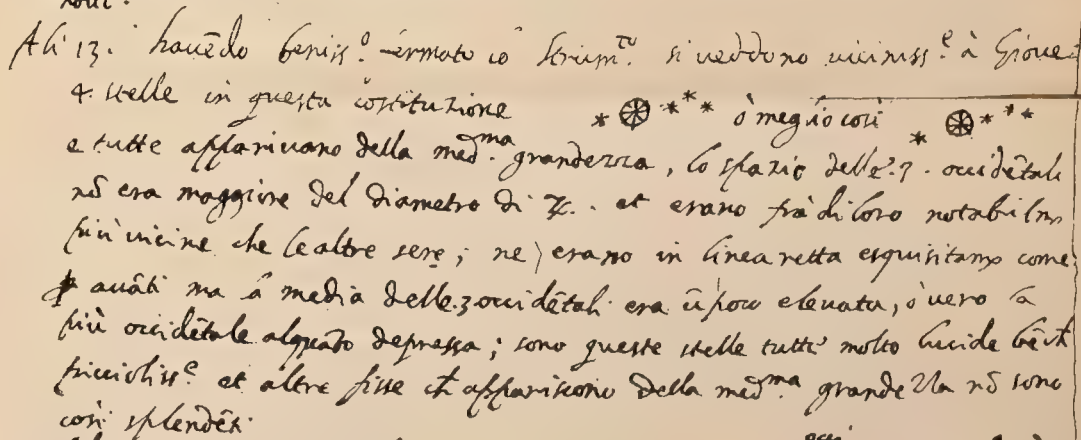 Alì 13. havẽdo beniss.º fermato lo strum.to si veddono viciniss.e à Giove
4. stelle in questa costituzione * ⊛ * * * ò meglio così * ⊛ * * *
e tutte apparivano della med.ma grandezza, lo spazio delle .3. occidẽtali
nõ era maggiore del diametro di ♃. et erano frà di loro notabilm.
più vicine che le altre sere; ne erano in linea retta esquisitam. come
p avãti ma la media delle .3 occidẽtali era ũ poco elevata, ò vero la
più occidẽtale alquãto depressa; sono queste stelle tutte molto lucide bẽch
picciliss.e et altre fisse ch appariscono della med.ma grandezza nõ sono
così splendẽti.